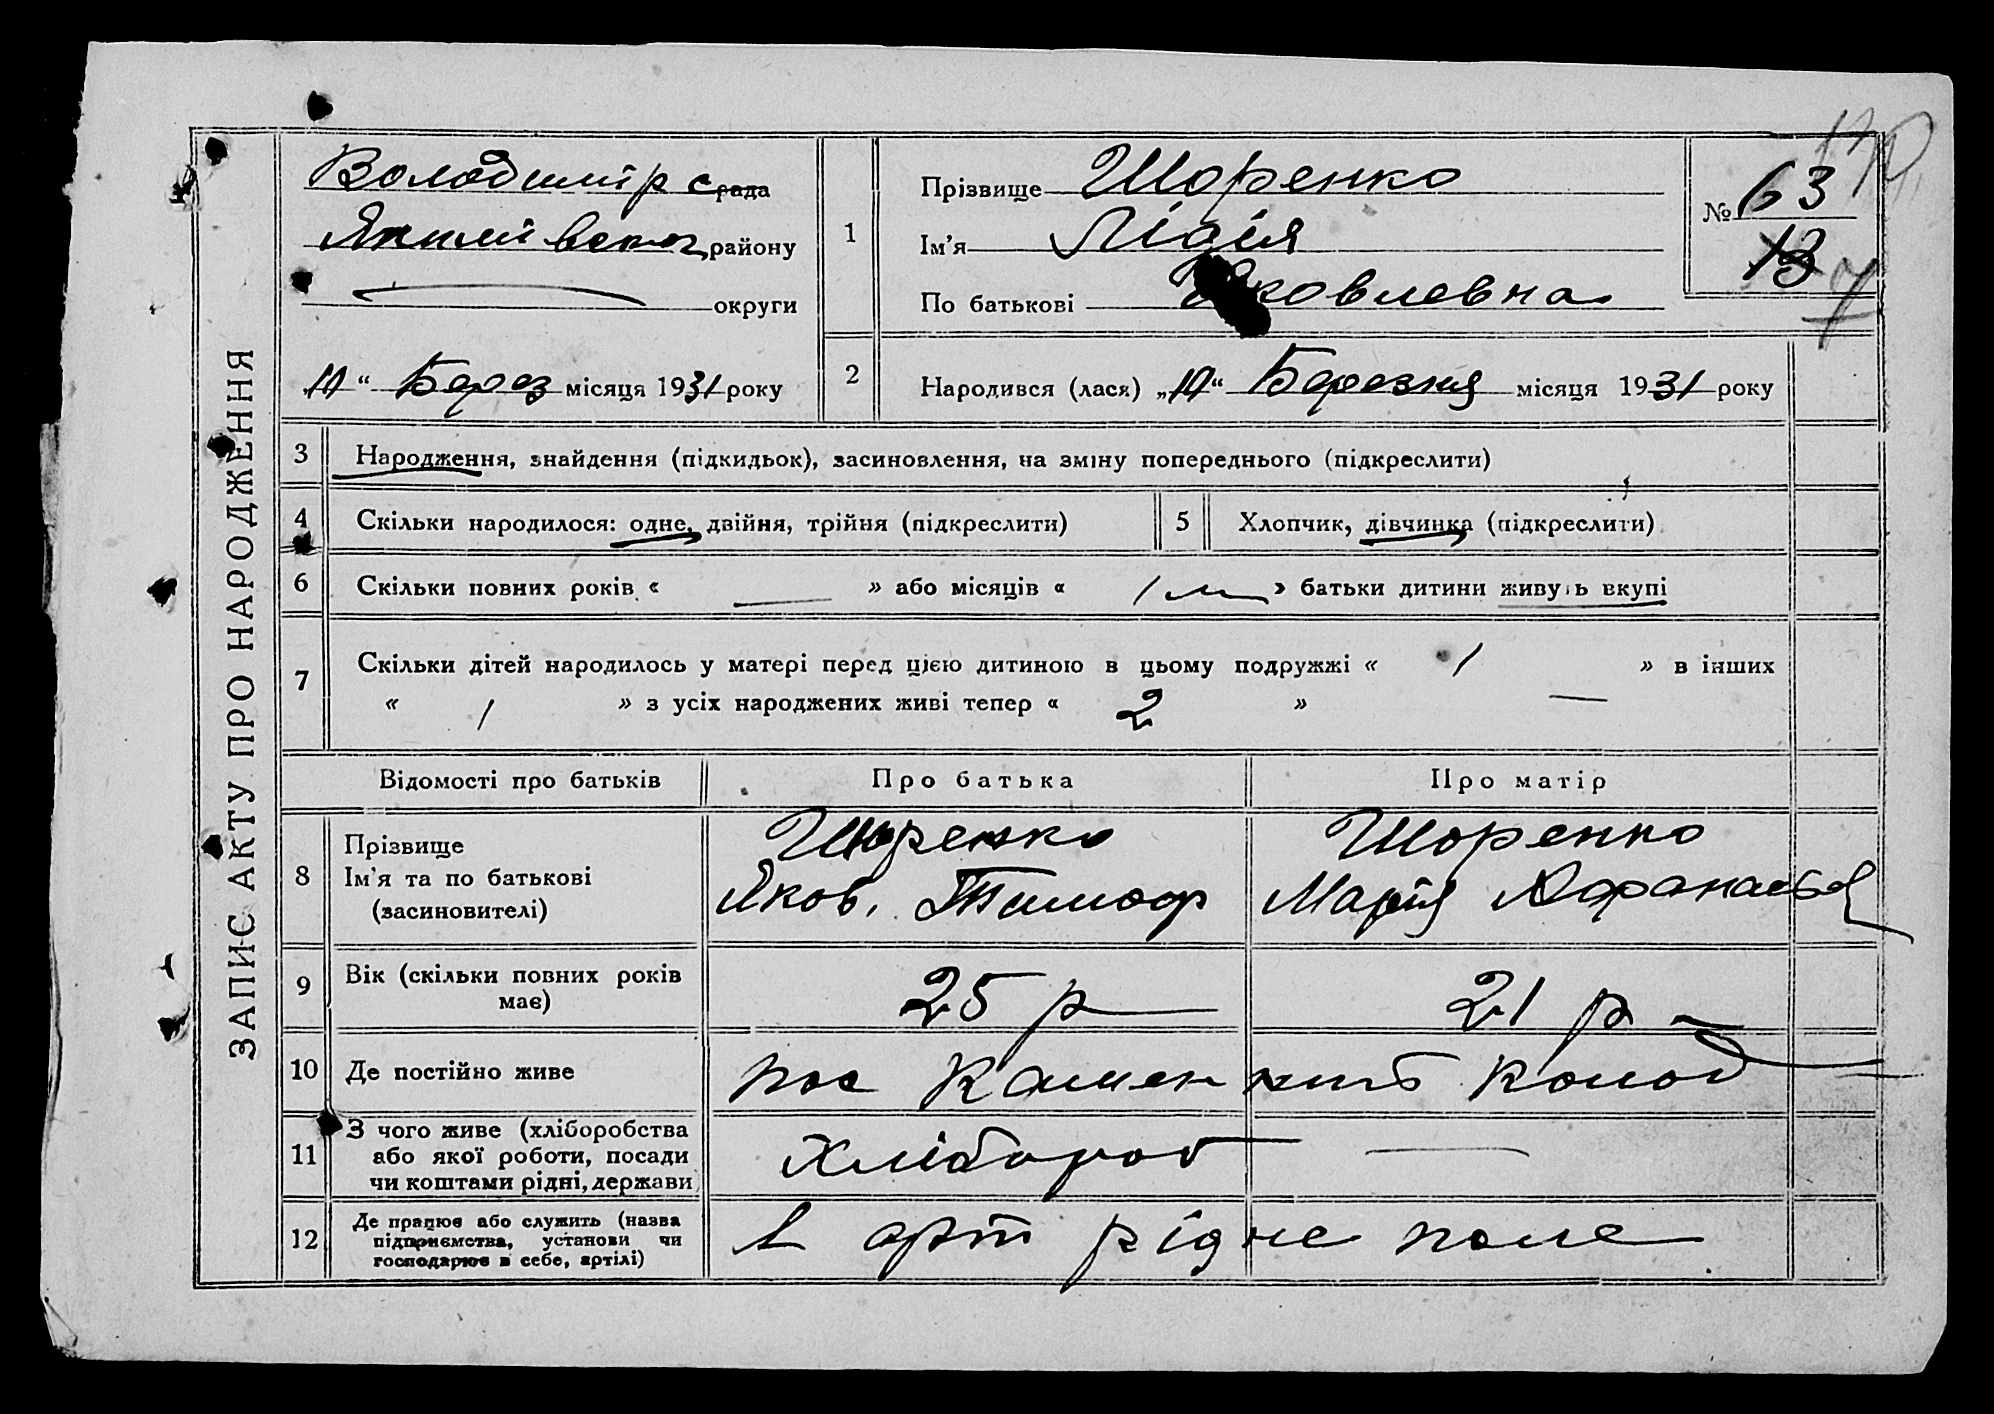 ЗАПИС АКТУ ПРО НАРОДЖЕННЯ
Володимир с рада
Якимівськог району
округи
„10“ Берез місяця 1931 року
1
Прізвище Шоренко
Ім’я Лідія
По батькові Яковлевна
№ 63
13
7
2
Народився (лася) „10“ Березня місяця 1931 року
3 Народження, знайдення (підкидьок), засиновлення, на зміну попереднього (підкреслити)
4 Скільки народилося: одне, двійня, трійня (підкреслити) 5 Хлопчик, дівчинка (підкреслити)
6 Скільки повних років « — » або місяців « 1 м » батьки дитини живуть вкупі
7 Скільки дітей народилось у матері перед цією дитиною в цьому подружжі « 1 » в інших
« 1 » з усіх народжених живі тепер « 2 » —
Відомості про батьків Про батька Про матір
8 Прізвище Шоренко Шоренко
Ім’я та по батькові Яков. Тимоф Марія Афанасьев
(засиновителі)
9 Вік (скільки повних років має) 25 р 21 р
10 Де постійно живе пос Камен колод
11 З чого живе (хліборобства Хлібороб —
або якої роботи, посади
чи коштами рідні, держави
12 Де працює або служить (назва в арт рідне поле
підприємства, установи чи
господарює в себе, артілі)